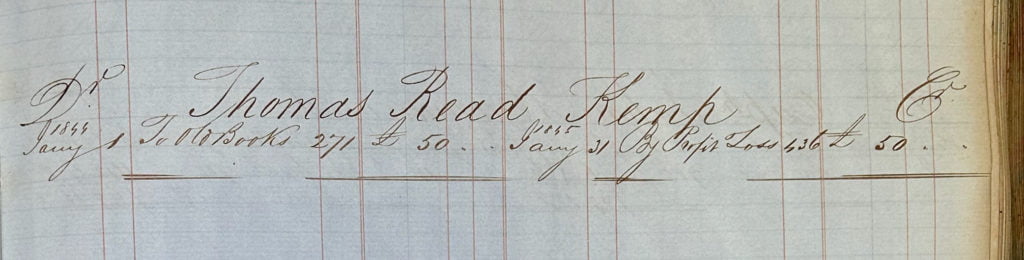 Dr Thomas Read Kemp Cr
1844 1845
Jany 1 To Old Books 271 £ 50 . . Jany 31 By Profit Loss 436 £ 50 . .